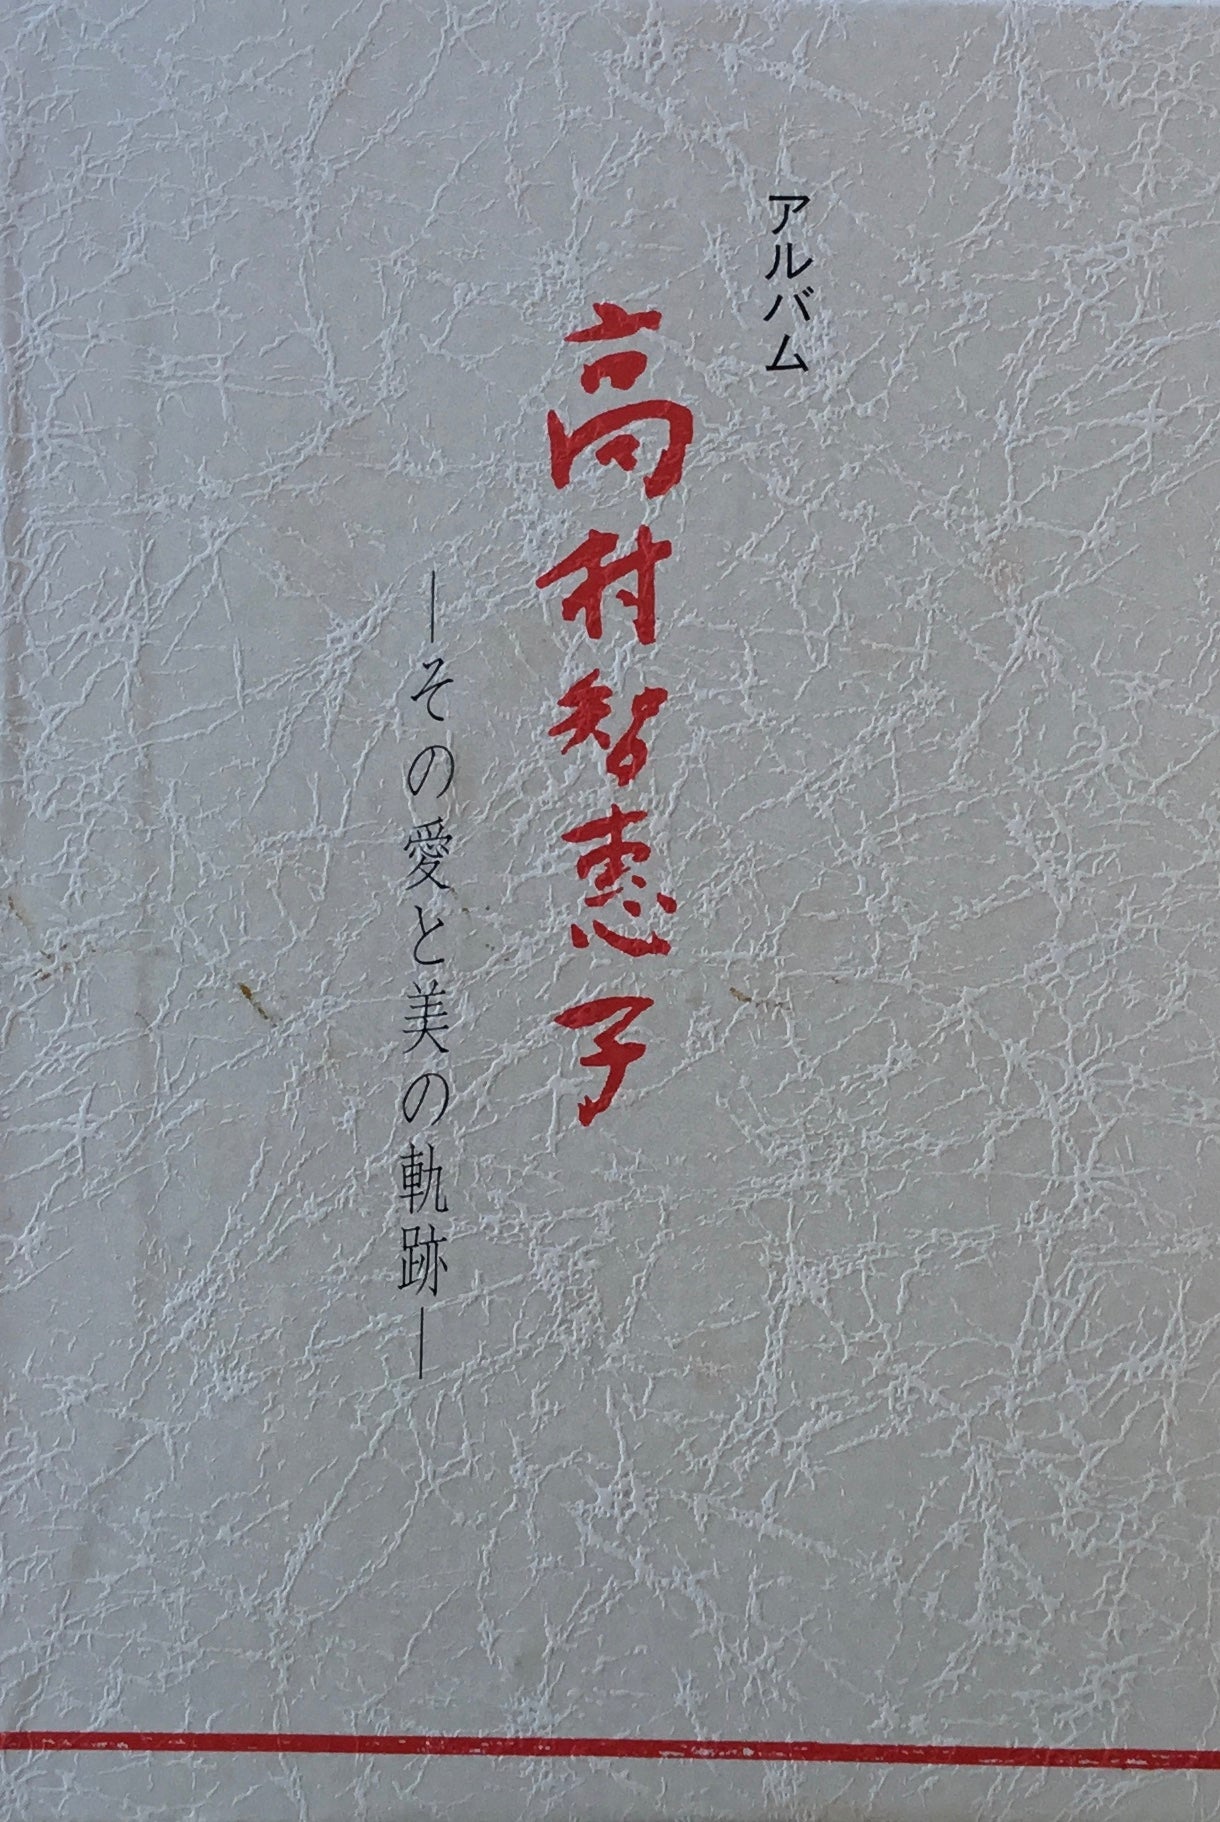 アルバム
高村智恵子
―その愛と美の軌跡―